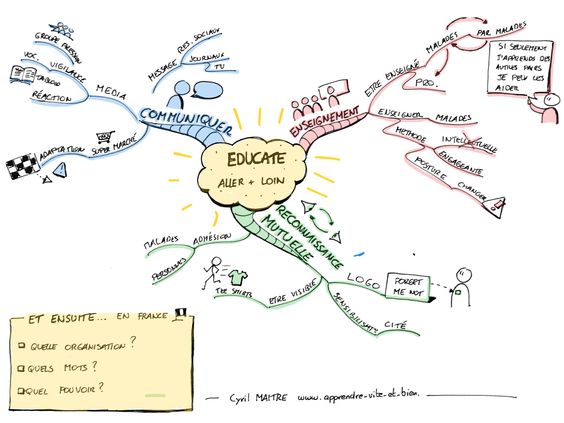 EDUCATE
ALLER + LOIN
COMMUNIQUER
MESSAGE
RES. SOCIAUX
JOURNAUX
TV
MEDIA
GROUPE PRESSION
VOC. VIGILANCE
TABLOID
RÉACTION
SUPER MARCHÉ
ADAPTATION
ENSEIGNEMENT
ETRE ENSEIGNÉ
MALADES
PAR MALADES
PRO.
SI SEULEMENT
J'APPRENDS DES
AUTRES PAIRS
JE PEUX LES
AIDER
ENSEIGNER MALADES
METHODE
INTELLECTUELLE
ENGAGEANTE
POSTURE CHANGER
RECONNAISSANCE
MUTUELLE
ADHÉSION
MALADES
PERSONNEL
ETRE VISIBLE
TEE SHIRTS
LOGO
FORGET
ME NOT
SENSIBILISAT°
CITÉ
ET ENSUITE... EN FRANCE
QUELLE ORGANISATION ?
QUELS MOTS ?
QUEL POUVOIR ?
Cyril MAITRE www.apprendre-vite-et-bien.